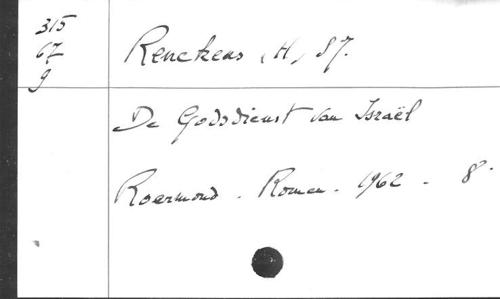 315
67
9
Renckens (H) SJ.
De Godsdienst van Israël
Roermond. Romen. 1962. 8°